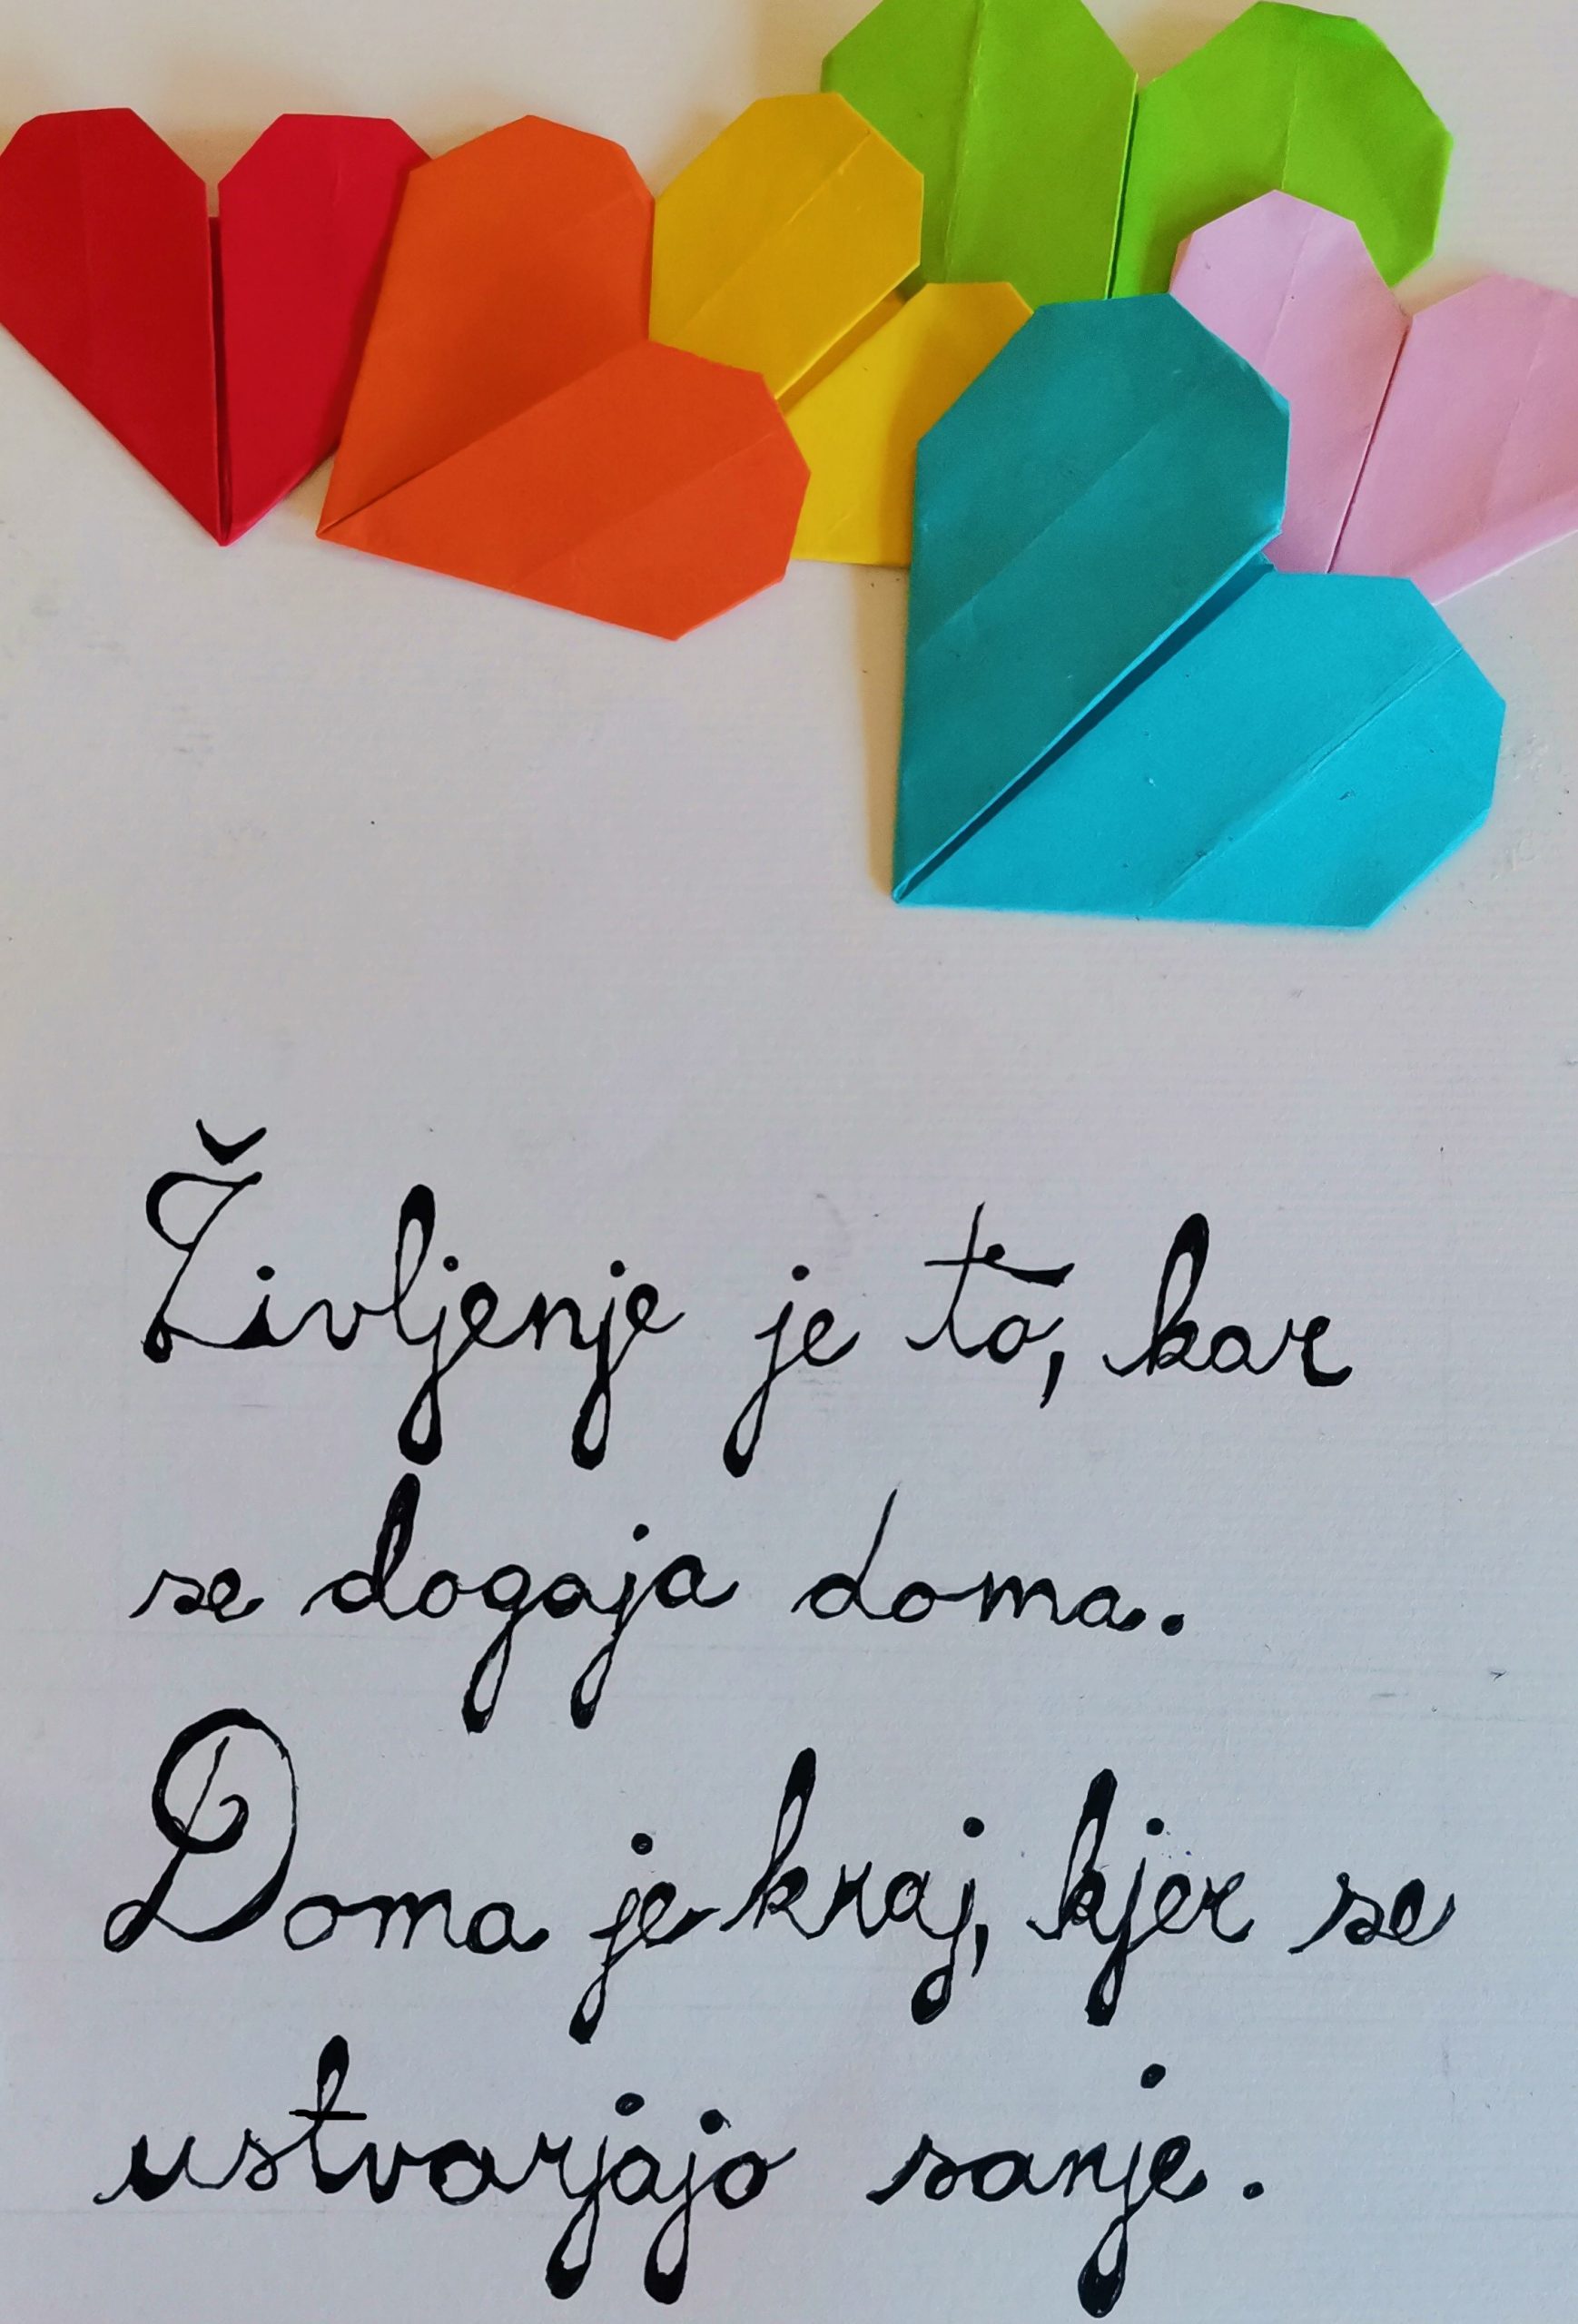 Življenje je to, kar
se dogaja doma.
Doma je kraj, kjer se
ustvarjajo sanje.